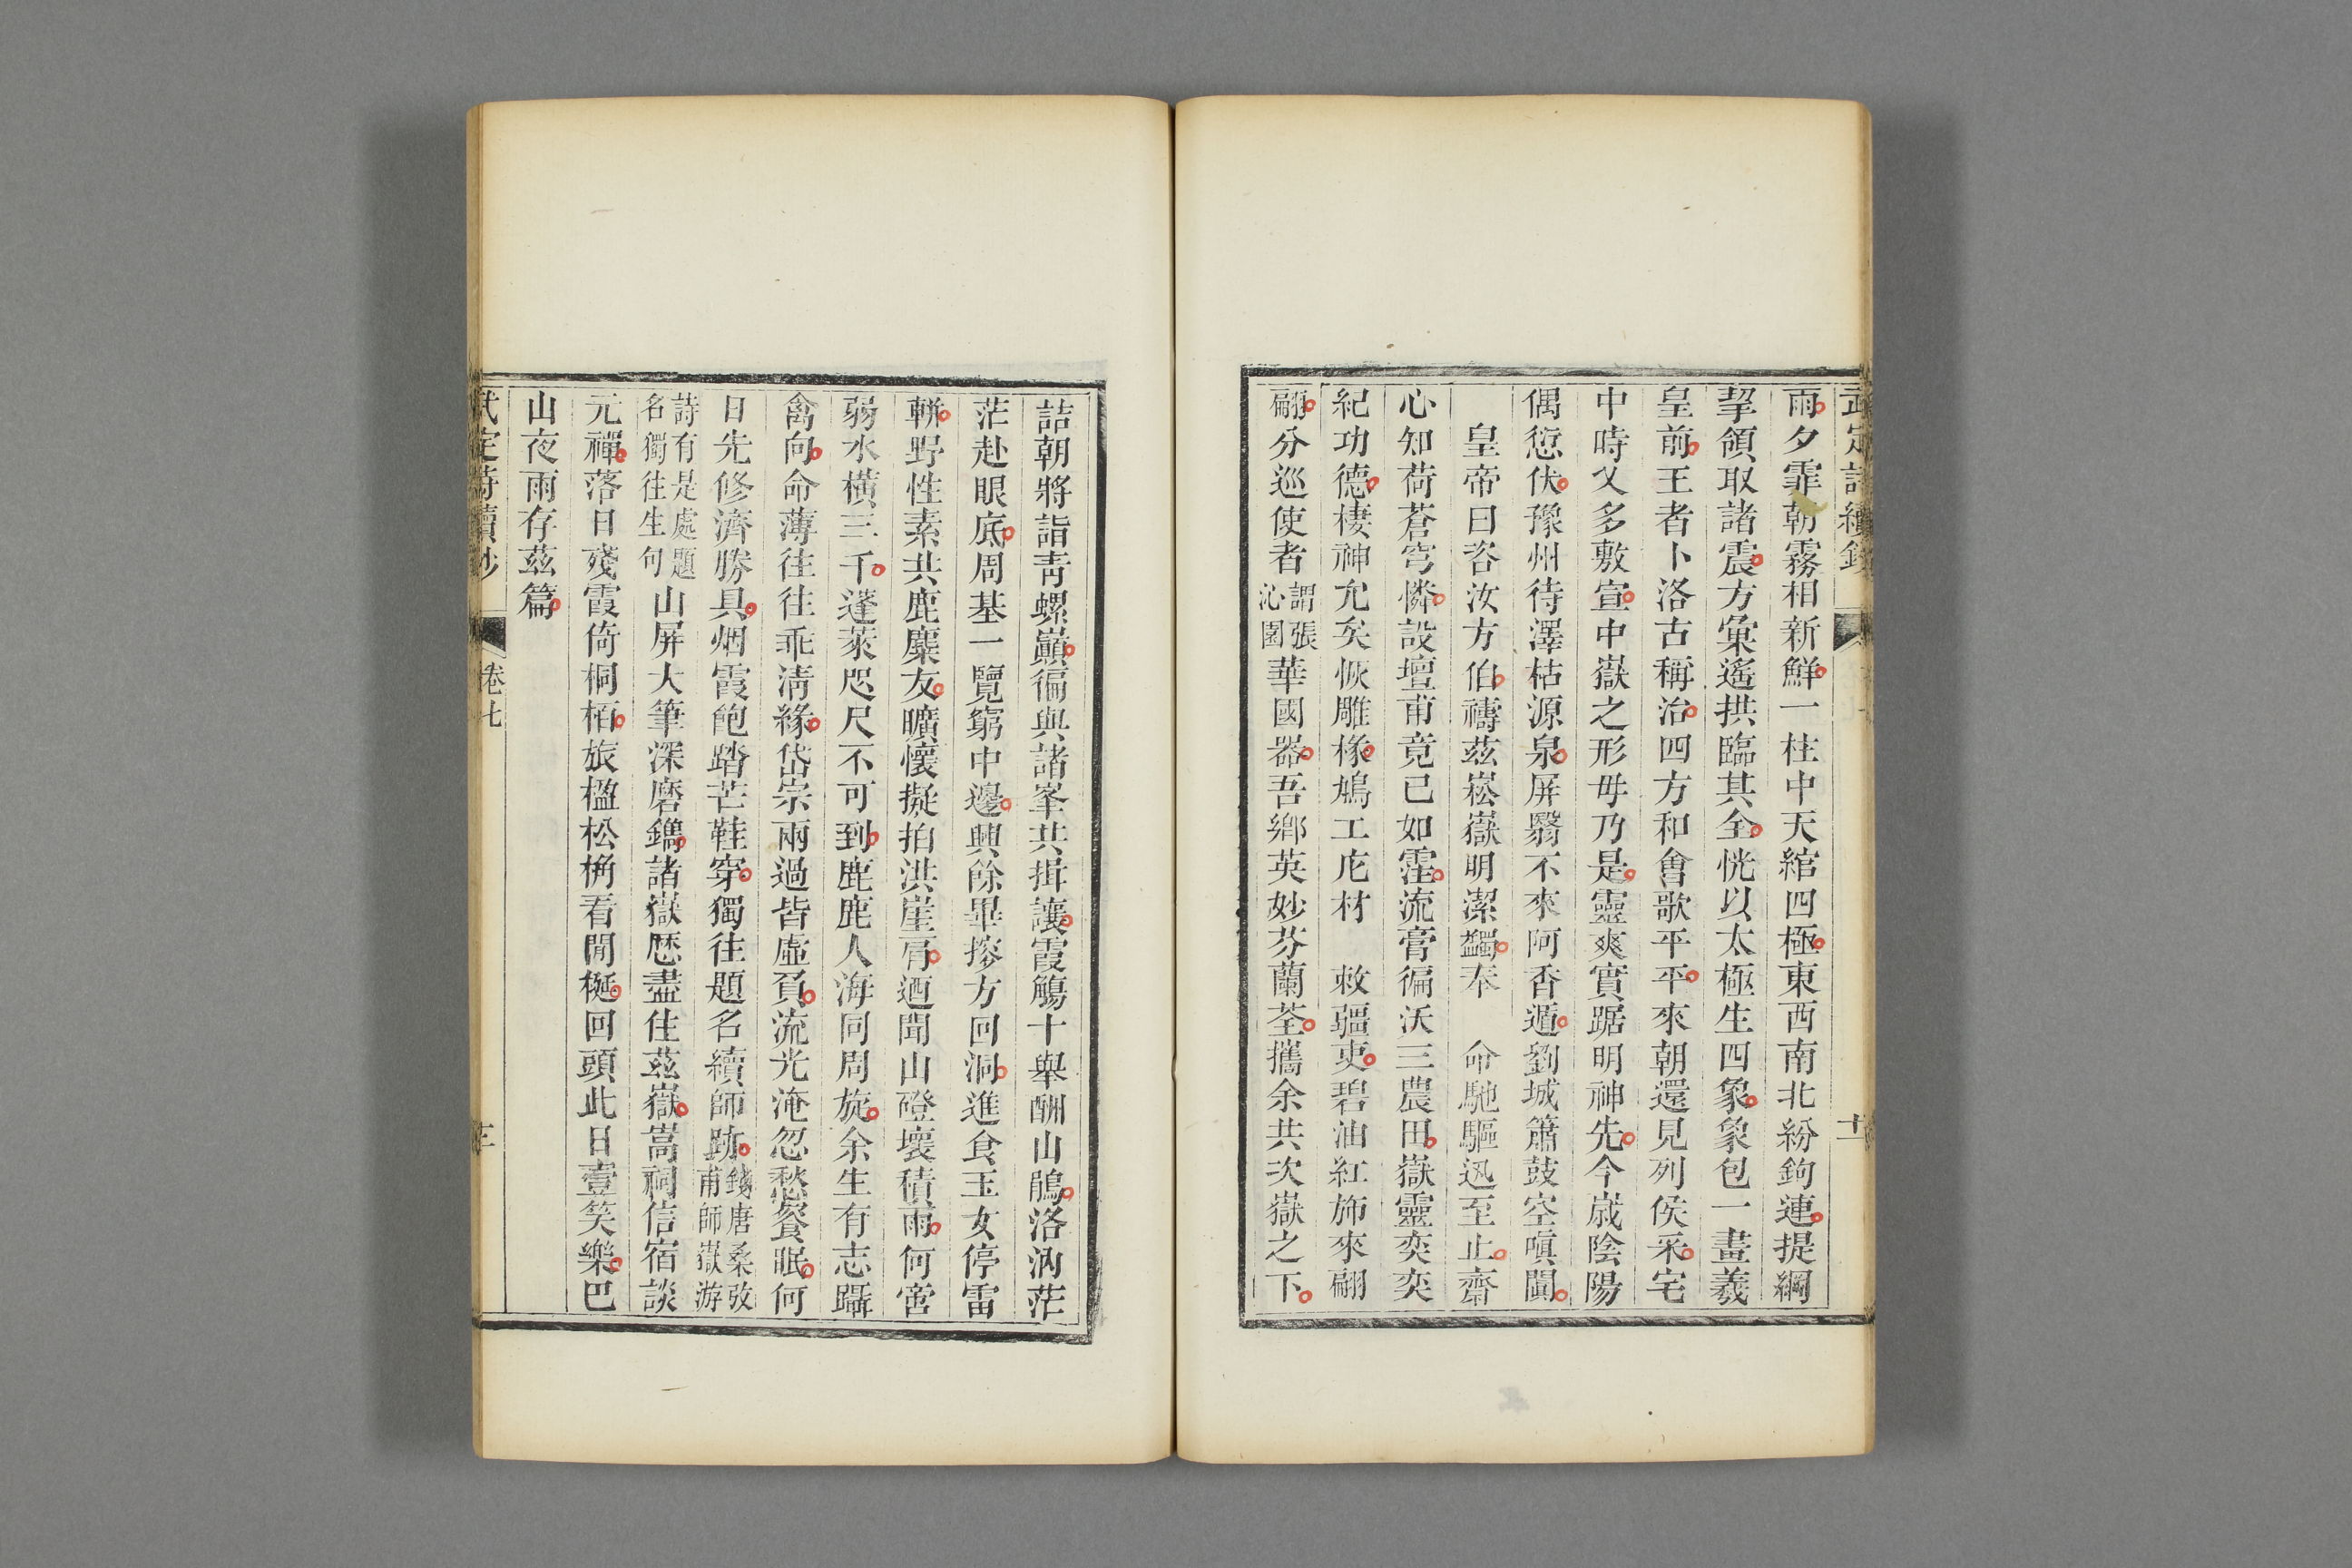 雨夕霏朝霧相新鮮一柱中天綰四極東西南北紛鉤連提綱
挈領取諸震方彙遙拱臨其全恍以太極生四象象包一畫羲
皇前王者卜洛古稱治四方和會歌平平來朝還見列侯采宅
中時乂多敷宣中嶽之形毋乃是靈爽實踞明神先今歲陰陽
偶愆伏豫州待澤枯源泉屏翳不來阿香遁劉城簫鼓空嗔闐
皇帝曰咨汝方伯禱茲崧嶽明潔蠲奉 命馳驅迅至止齋
心知荷蒼穹憐設壇甫竟已如霔流膏徧沃三農田嶽靈奕奕
紀功德棲神允矣恢雕椽鳩工庀材 敕疆吏碧油紅斾來翩
翩分巡使者謂張沁園華國器吾鄉英妙芬蘭荃攜余共次嶽之下
詰朝將詣青螺巔徧與諸峯共揖讓霞觴十舉酬山鵑洛汭茫
茫赴眼底周基一覽窮中邊興餘畢搜方回洞進食玉女停雷
軿野性素共鹿麋友曠懷擬拍洪崖肩迺聞山磴壞積雨何啻
弱水橫三千蓬萊咫尺不可到鹿鹿人海同周旋余生有志躡
禽向命薄往往乖清緣岱宗兩過皆虛負流光淹忽愁餐眠何
日先修濟勝具烟霞飽踏芒鞋穿獨往題名續師跡錢唐桑弢甫師嶽游
詩有是處題名獨往生句山屏大筆深磨鐫諸嶽歷盡住茲嶽嵩祠信宿談
元禪落日殘霞倚桐栢旅楹松桷看閒梴回頭此日壹笑樂巴
山夜雨存茲篇
卷七